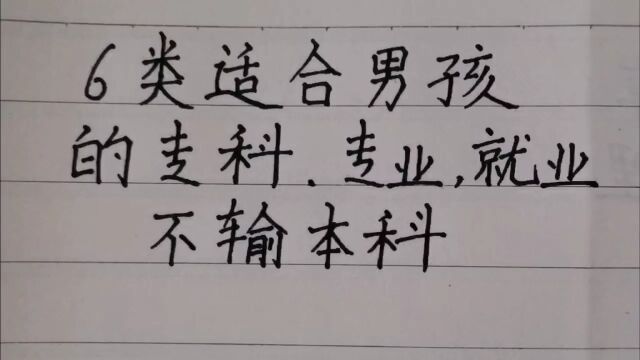 6类适合男孩
的专科.专业,就业
不输本科